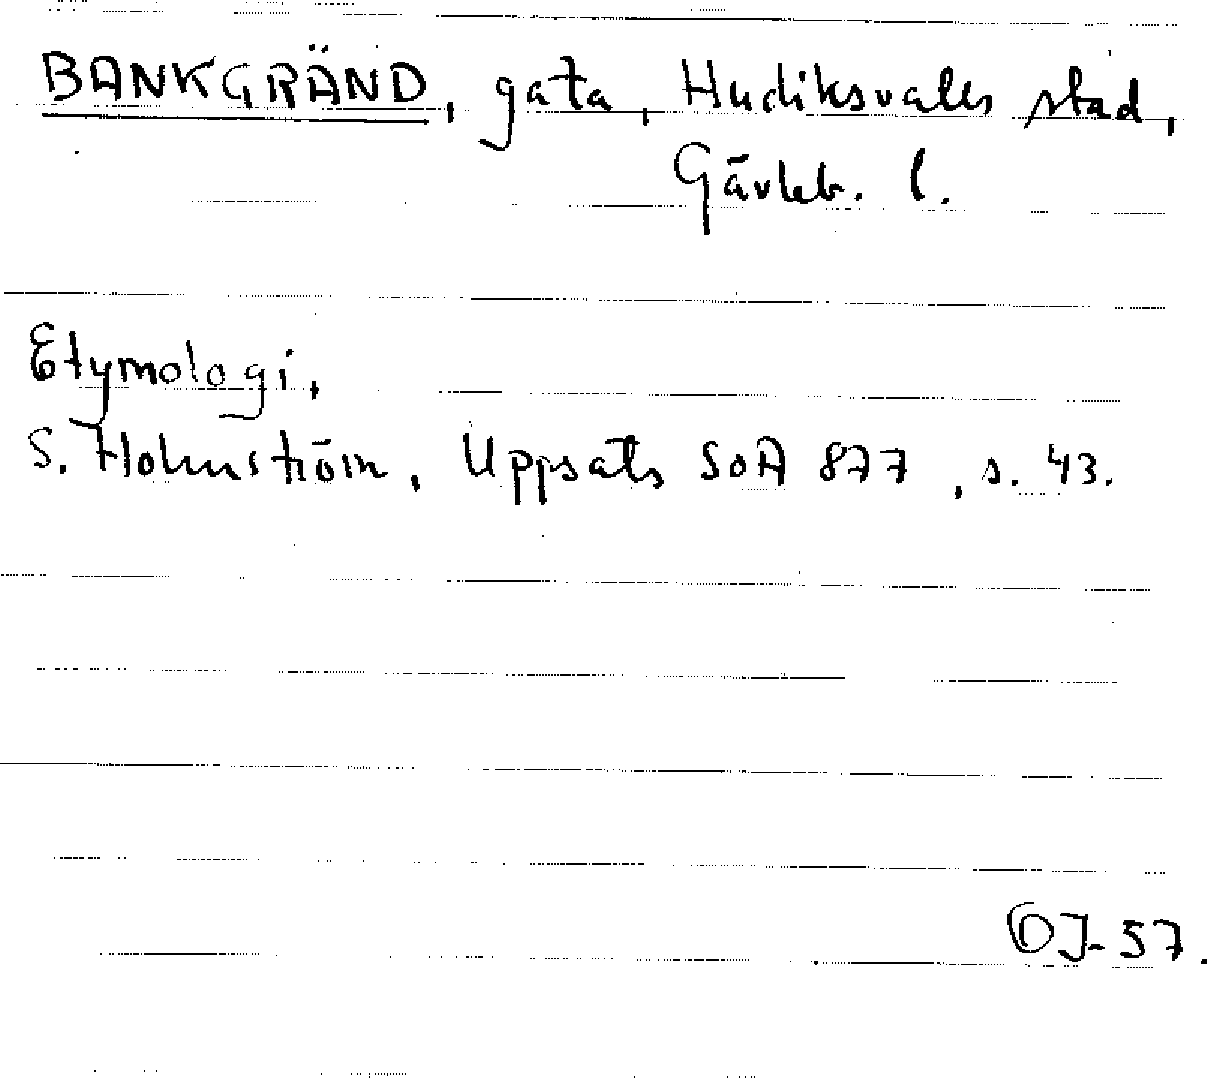 BANKGRÄND, gata, Hudiksvalls stad,
Gävleb. l.
Etymologi,
S. Holmström, Uppsats SOA 877, s. 43.
OJ-57.